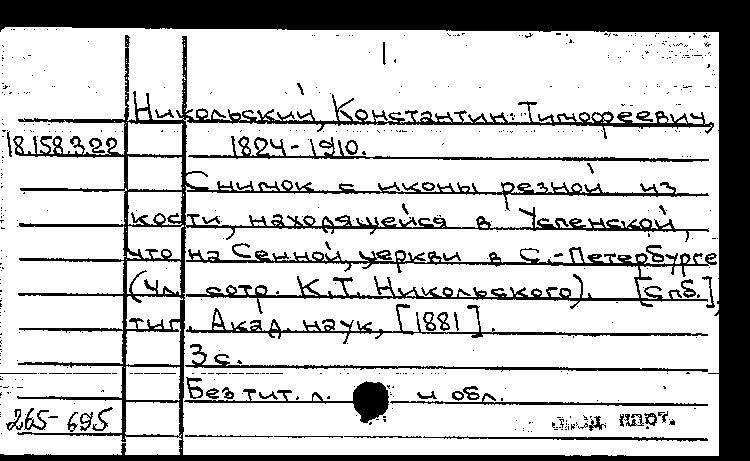 1.
Никольский, Константин Тимофеевич,
18.158.3.22 1824-1910.
Снимок с иконы резной из
кости, находящейся в Успенской,
что на Сенной, церкви в С.-Петербурге
(Чл. сотр. К.Т. Никольского). [Спб.],
тип. Акад. наук, [1881].
3 с.
Без тит. л. и обл.
265-695